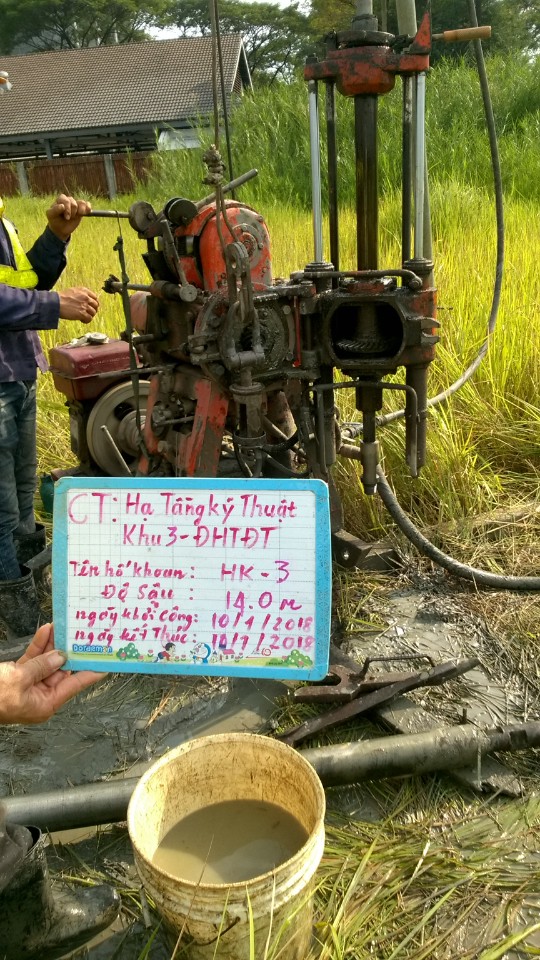 CT: Hạ Tầng kỹ Thuật
Khu 3-ĐHTĐT
Tên hố khoan: HK-3
Độ Sâu : 14.0 m
ngày khởi Công: 10/1/2018
ngày kết Thúc: 10/1/2018
Doraemon